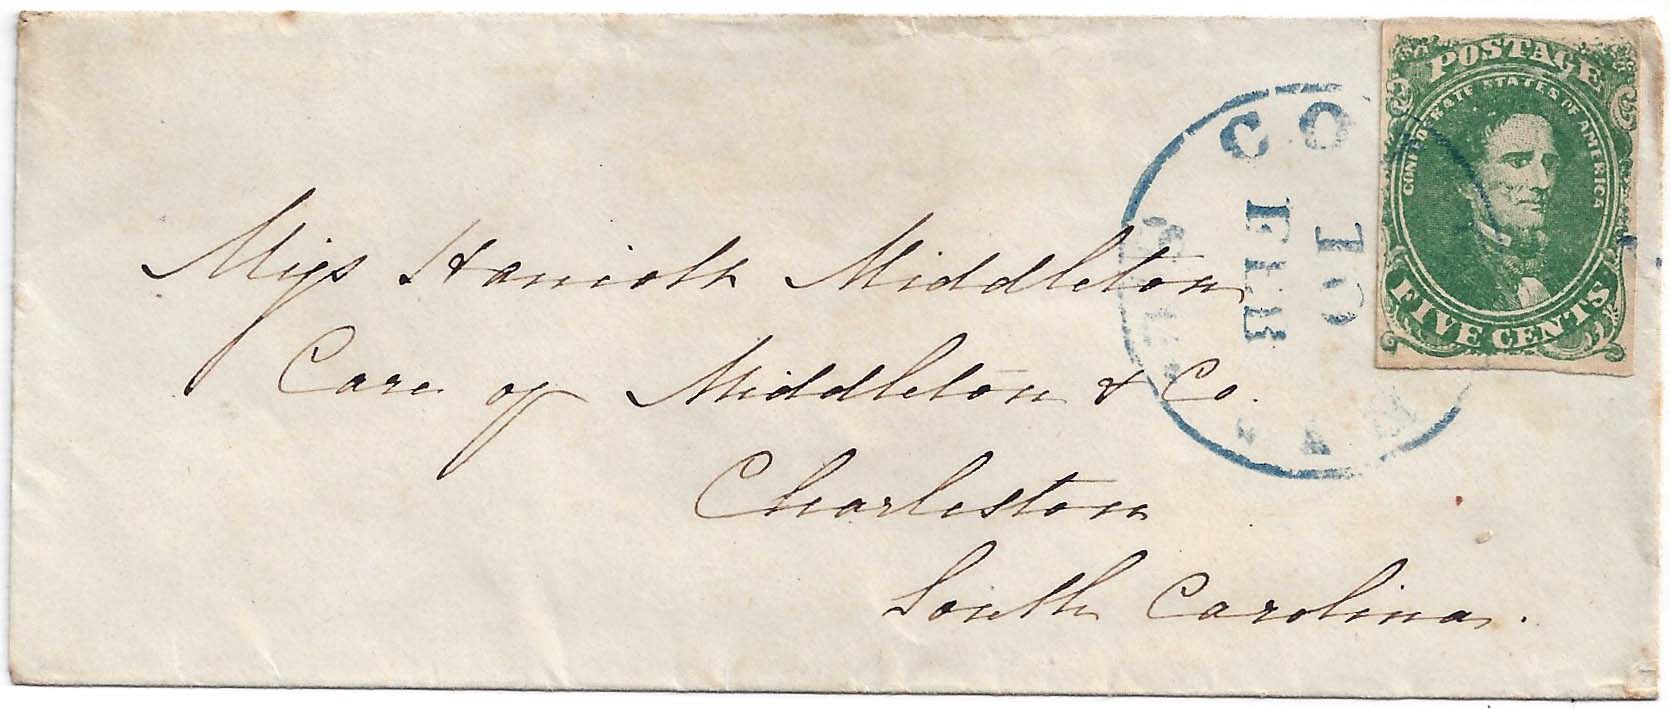 POSTAGE
CONFEDERATE STATES OF AMERICA
FIVE CENTS
CO
FEB
10
Miss Harriott Middleton
Care of Middleton & Co.
Charleston
South Carolina.